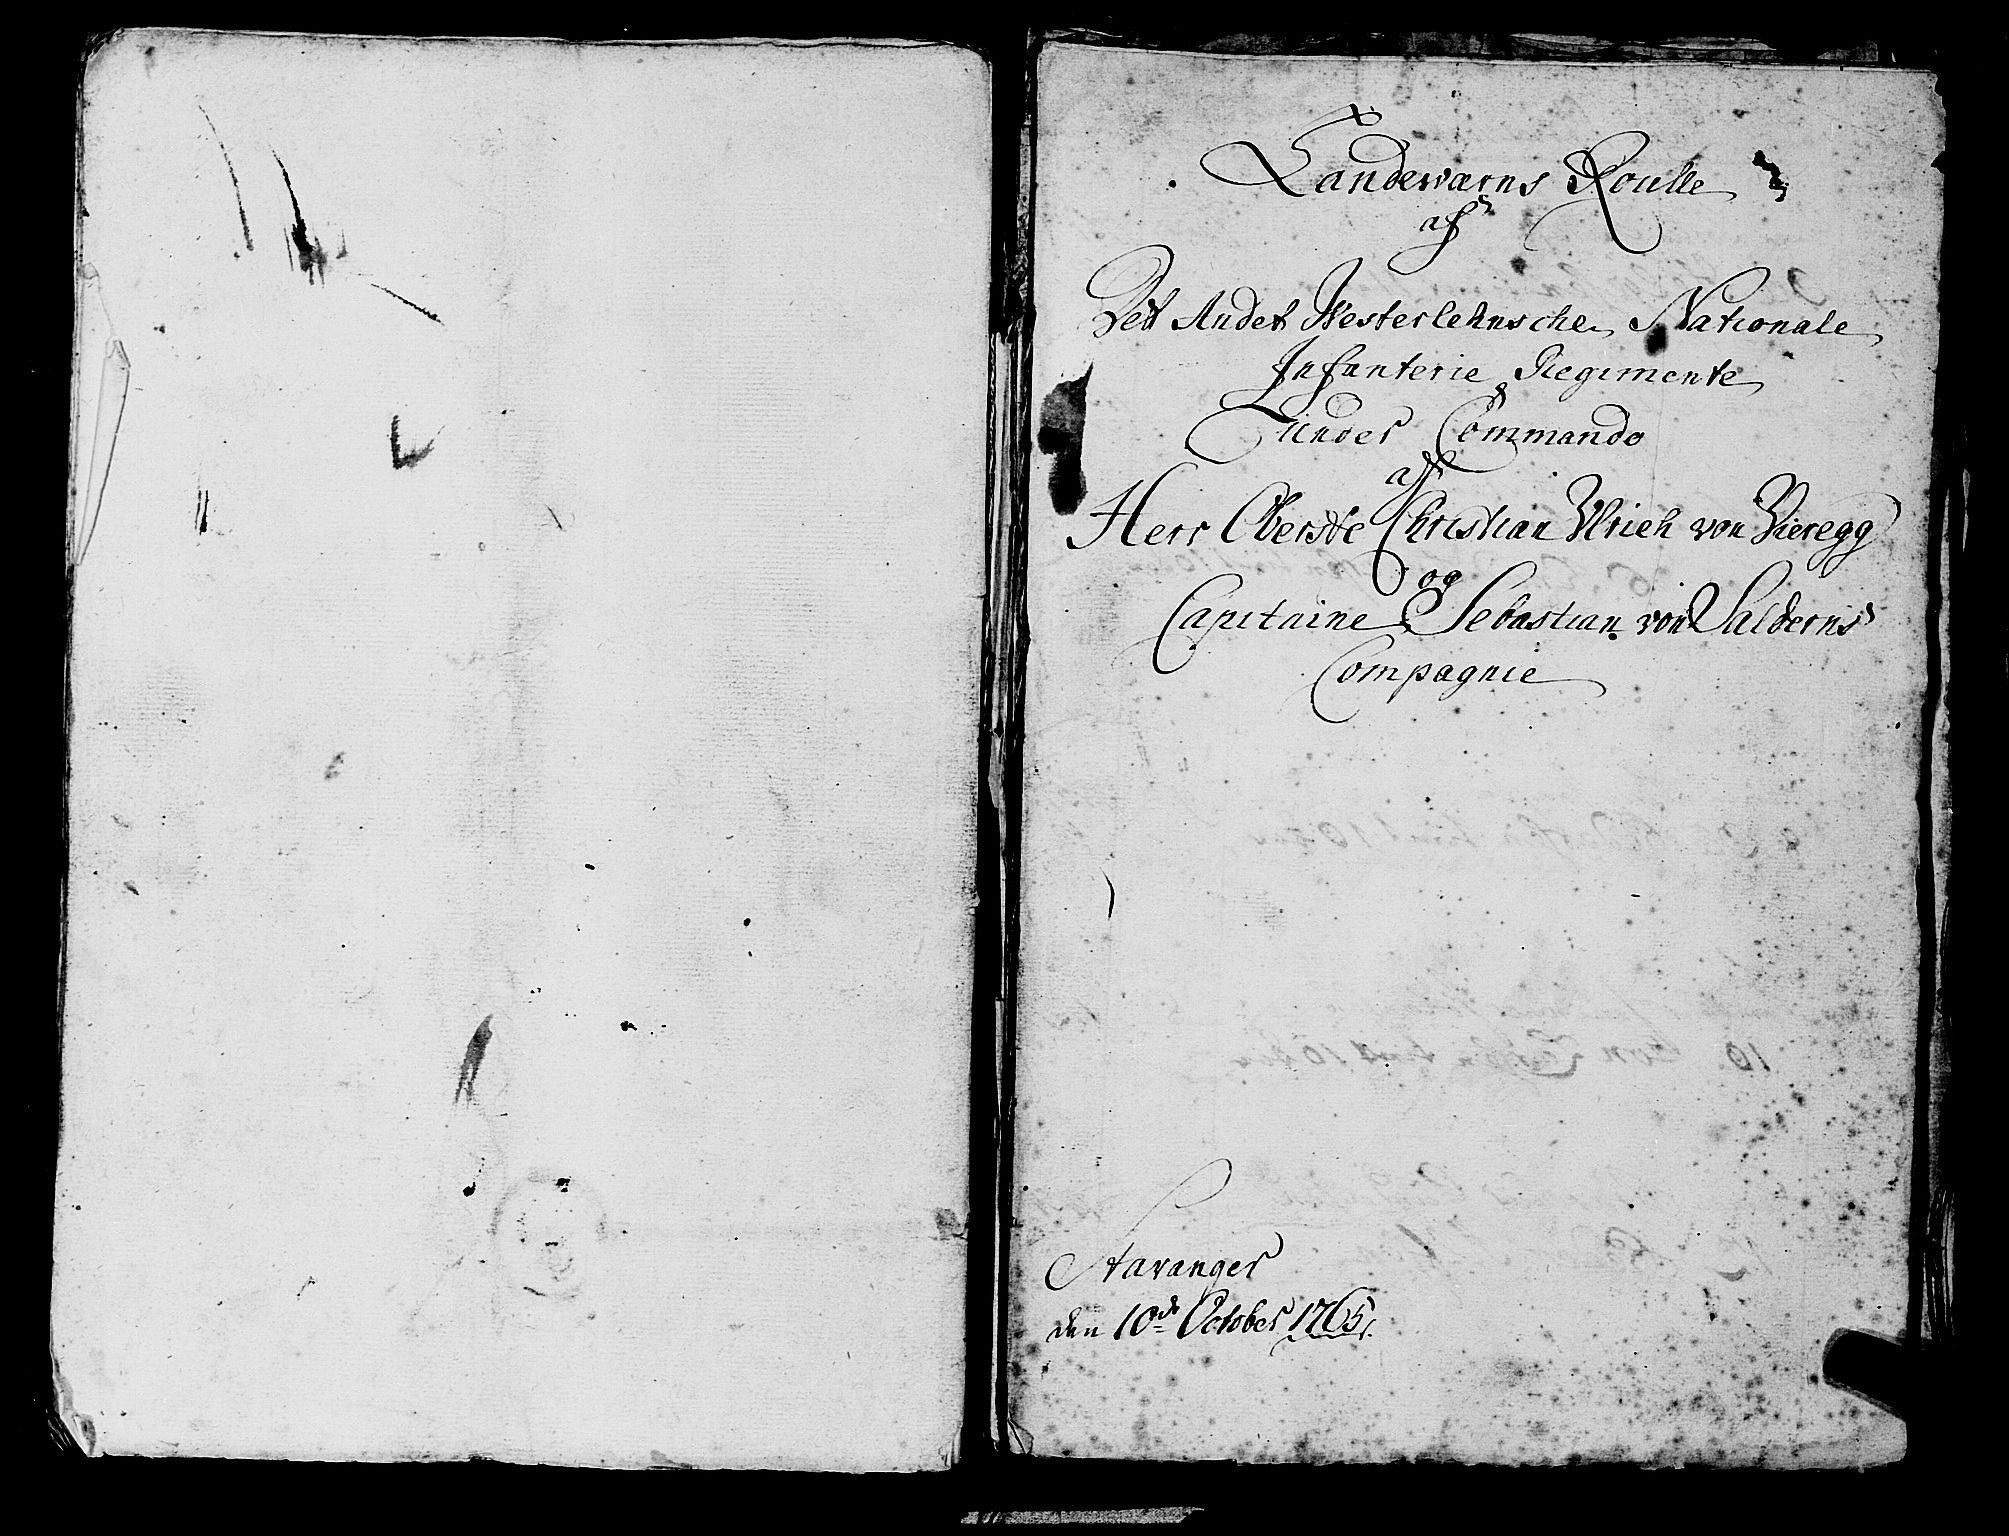 Landewærns Roulle
af
Det Andet Westerlehnsche Nationale
Infanterie Regimente
under Commando
af
Herr Oberste Christian Ulrich von Vieregg
og
Capitaine Sebastian von Salderns
Compagnie
Stavanger
den 10de October 1765.